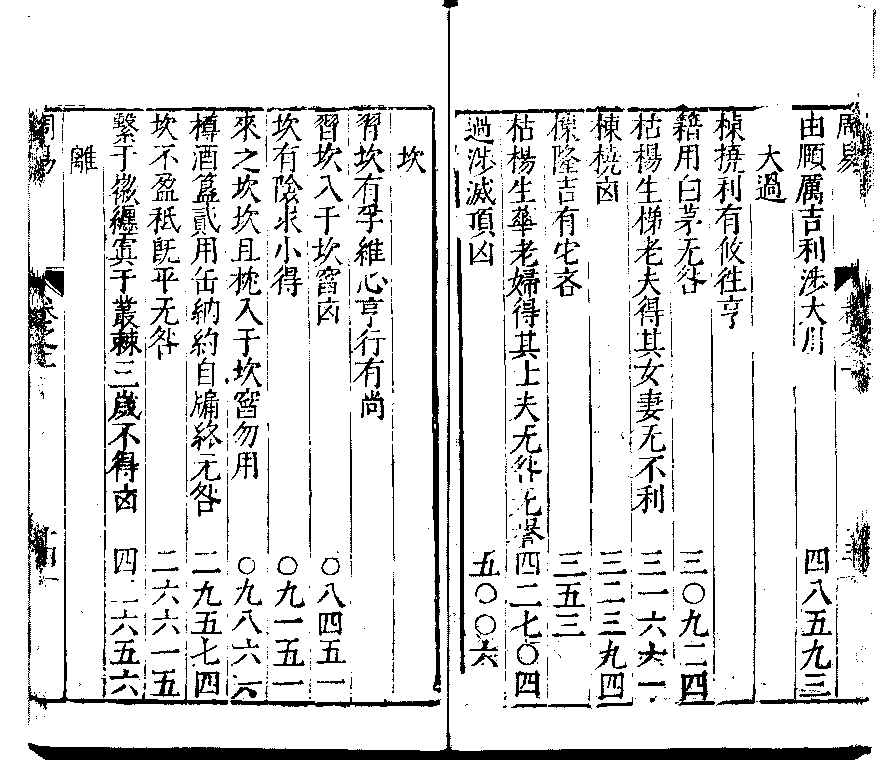 周易
由願厲吉利涉大川 四八五九三
大過
棟撓利有攸往亨
籍用白茅无咎 三〇九二四
枯楊生梯老夫得其女妻无不利 三一六六一
棟橈凶 三二三九四
棟隆吉有它吝 三五三
枯楊生華老婦得其士夫无咎无譽 四二七〇四
過涉滅頂凶 五〇〇六
坎
習坎有孚維心亨行有尚
習坎入于坎窞凶 〇八四五一
坎有險求小得 〇九一五一
來之坎坎且枕入于坎窞勿用 〇九八六一
樽酒簋貳用缶納約自牖終无咎 二九五七四
坎不盈祗既平无咎 二六六一五
繫于徽纆寘于叢棘三歲不得凶 四二六五六
離
周易